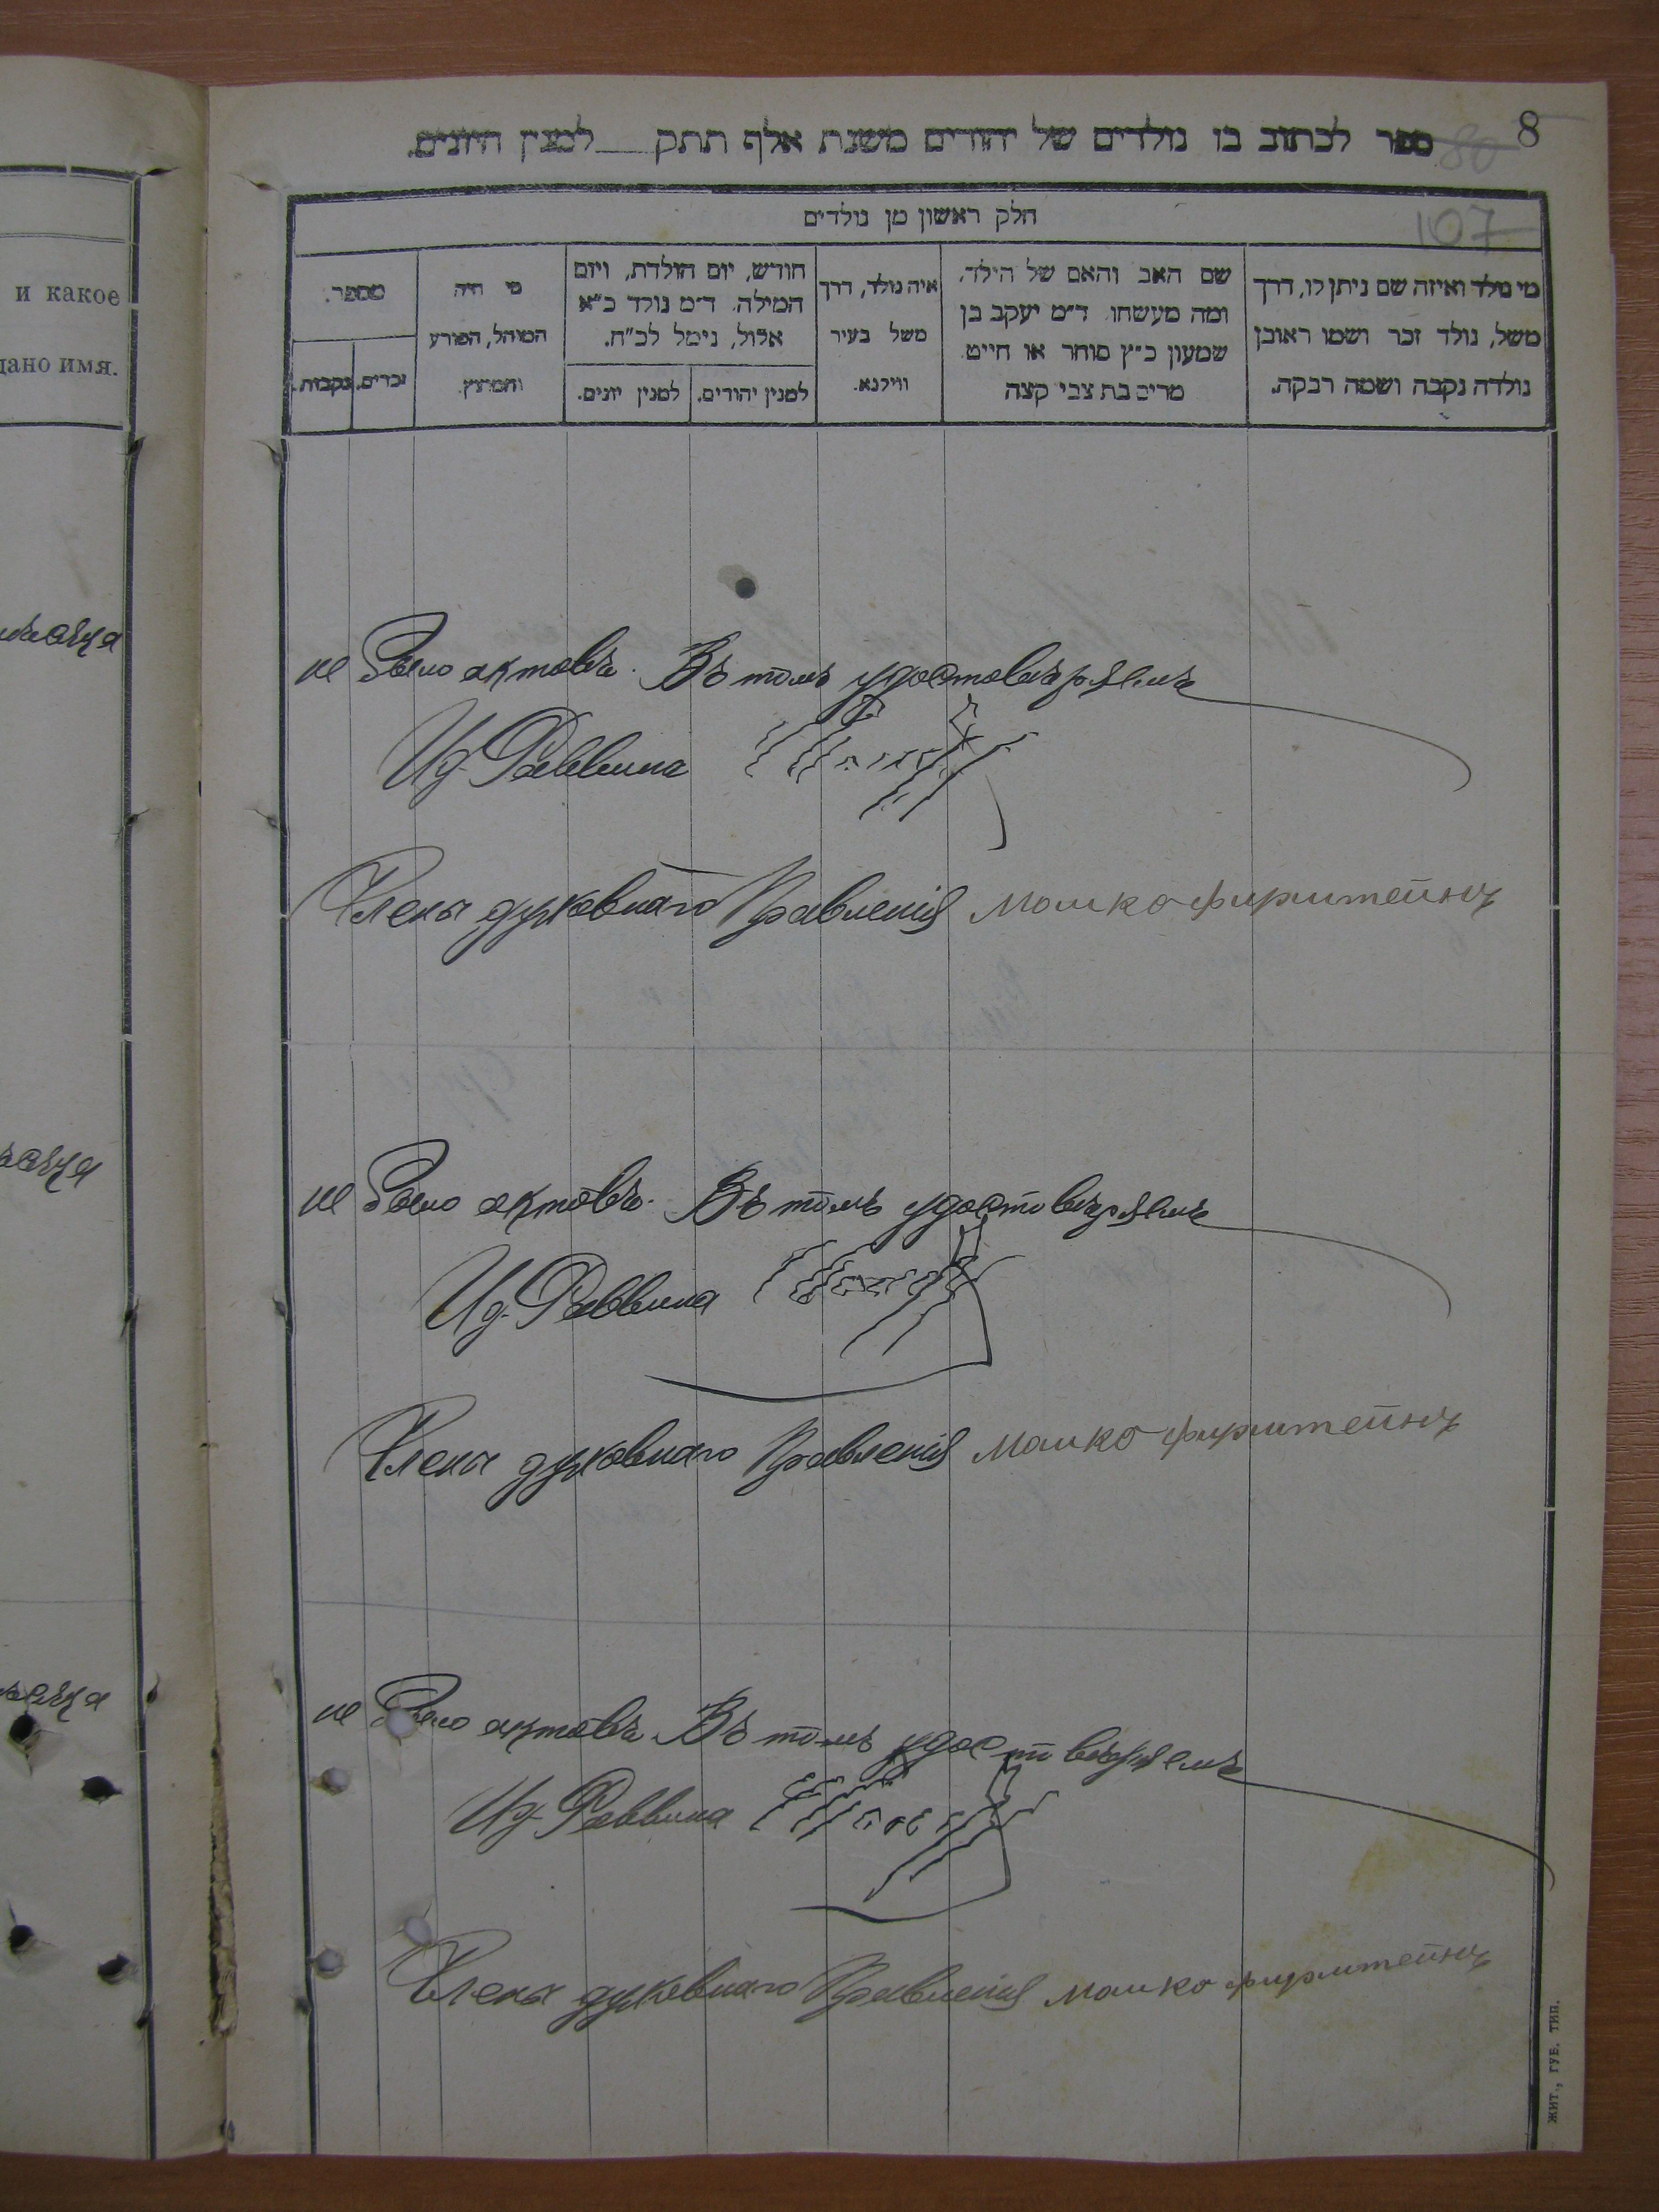 8
80
ספר לכתוב בו נולדים של יהודים משנת אלף תתק___למנין היונים.
107
חלק ראשון מן נולדים
מי נולד ואיזה שם ניתן לו, דרך
משל, נולד זכר ושמו ראובן
נולדה נקבה ושמה רבקה.
שם האב והאם של הילד,
ומה מעשהו ד״מ יעקב בן
שמעון כ״ץ סוחר או חייט
מרים בת צבי קצה
איה נולד, דרך
משל בעיר
ווילנא.
חודש, יום הולדת, ויום
המילה. ד״מ נולד כ״א
אלול, נימל לכ״ח.
למנין יהודים.
למנין יונים.
מי היה
המוהל, הפורע
והמוצץ.
מספר.
זכרים.
נקבות.
и какое
дано имя.
не было актовъ. Въ томъ удостовѣряемъ
Ид. Раввина
Члены духовнаго Правленія Мошко Фирштейнъ
не было актовъ. Въ томъ удостовѣряемъ
Ид. Раввина
Члены духовнаго Правленія Мошко Фирштейнъ
не было актовъ. Въ томъ удостовѣряемъ
Ид. Раввина
Члены духовнаго Правленія Мошко Фирштейнъ
ЖИТ., ГУБ. ТИП.